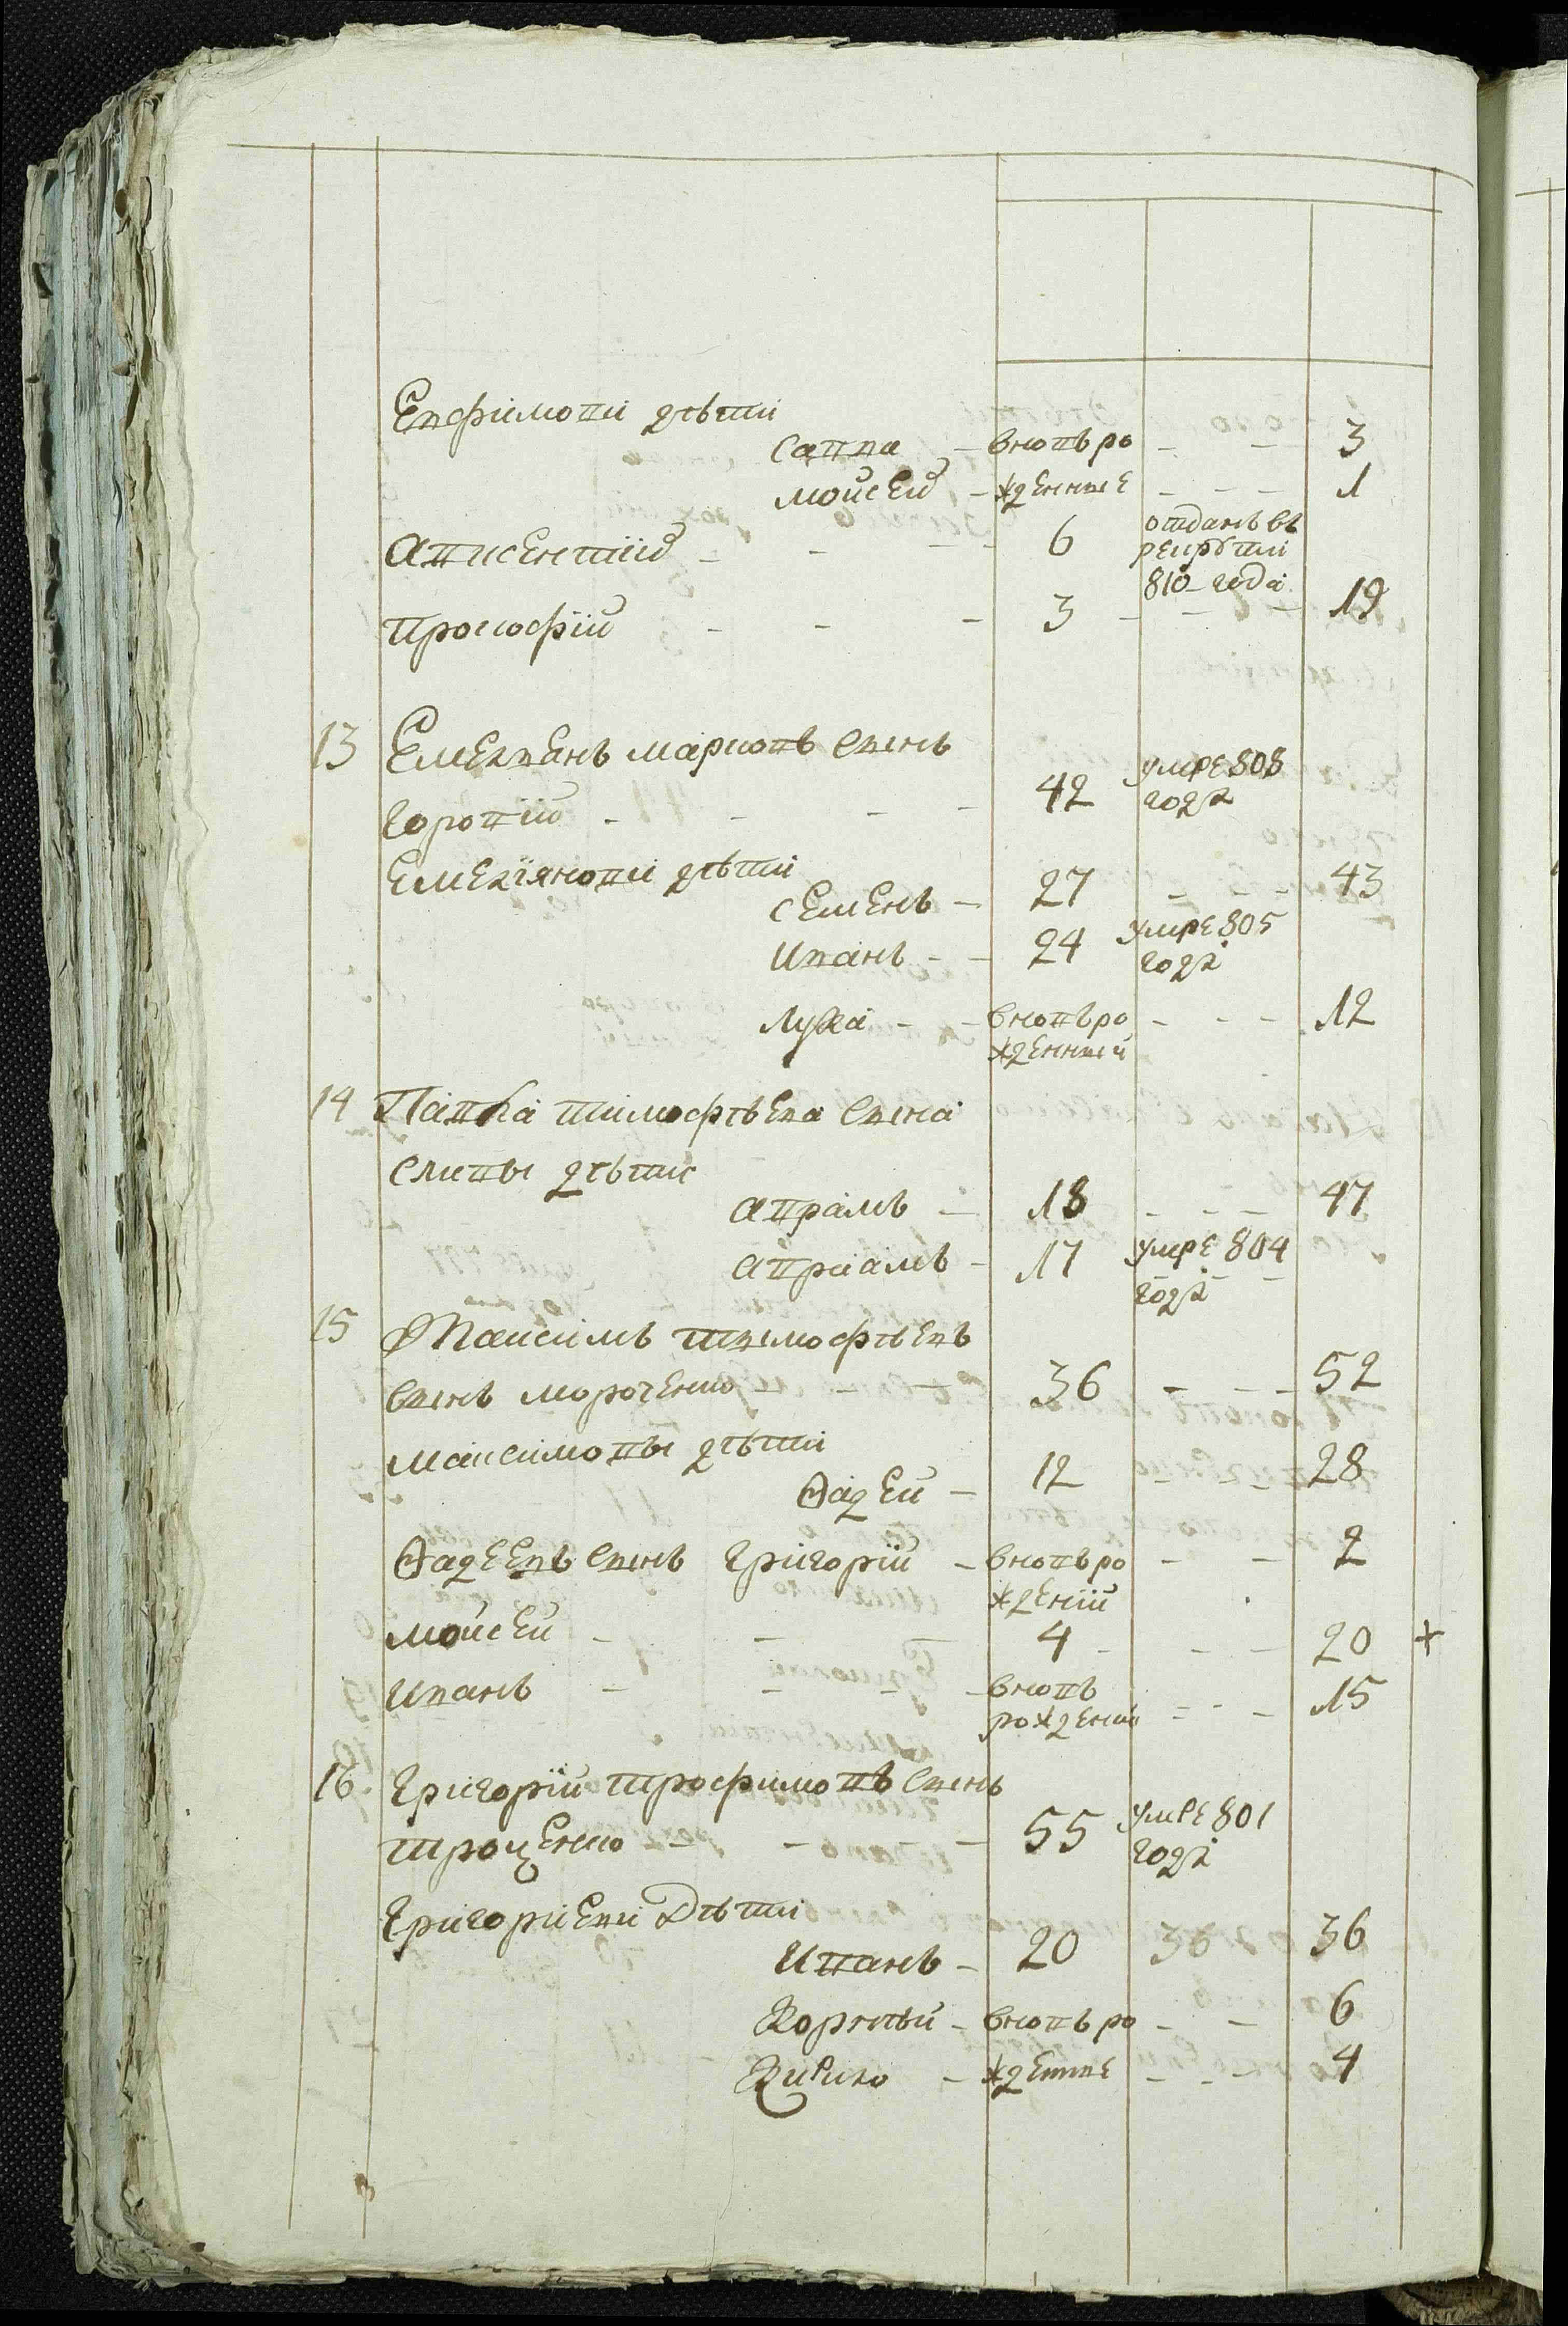 Евфимови дѣти
Савва - вновь ро - - 3
Мойсей - жденные - - - 1
Авксентiй - - - 6 отданъ въ
рекрути
810 года
Прокофiй - - - 3 - - - 19
13 Емельянъ Марковъ сынъ
Горовiй - - - - 42 умре 808
года
Емелiянови дѣти
Семенъ - 27 - - - 43
Иванъ - - 24 умре 805
года
Лука - - вновь ро - - - 12
жденный
14 Павла Тимофѣева сына
Сливы дѣти
Аврамъ - 18 - - - 47
Аврiамъ - 17 умре 804
года
15 Максимъ Тимофѣевъ
сынъ Мороченко - - - 36 - - - 52
Максимовы дѣти
Ѳадей - 12 - - - 28
Ѳадеевъ сынъ Григорiй - вновь ро - - 2
жденiй
Мойсей - - - 4 - - - 20 +
Иванъ - - - - вновь
рожденний - - - 15
16 Григорiй Трофимовъ сынъ
Троценко - - - 55 умре 801
года
Григорiеви дѣти
Иванъ - 20 36 36
Корнѣй - вновь ро - - 6
Кирико - жденные - - - 4